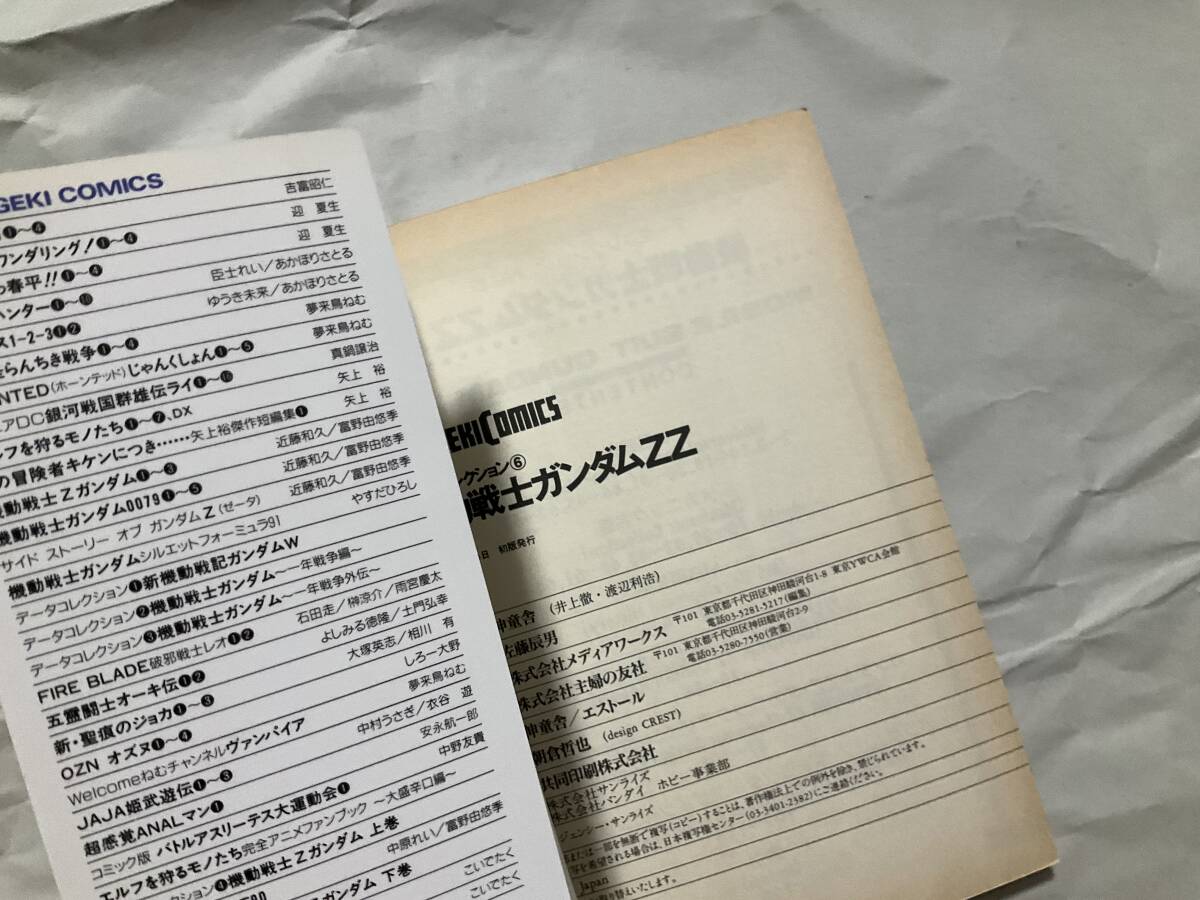 GEKI COMICS
❶〜❹ 吉富昭仁
ワンダリング!❶〜❹ 迎 夏生
春平!!❶〜❹ 迎 夏生
ハンター❶〜❿ 臣士れい/あかほりさとる
ス1-2-3❶❷ ゆうき未来/あかほりさとる
らんちき戦争❶〜❹ 夢来鳥ねむ
NTED(ホーンテッド)じゃんくしょん❶〜❺ 夢来鳥ねむ
アDC銀河戦国群雄伝ライ❶〜⓰ 真鍋譲治
ルフを狩るモノたち❶〜❼、DX 矢上 裕
の冒険者キケンにつき……矢上裕傑作短編集❶ 矢上 裕
機動戦士Zガンダム❶〜❸ 近藤和久/富野由悠季
機動戦士ガンダム0079❶〜❺ 近藤和久/富野由悠季
サイド ストーリー オブ ガンダムZ(ゼータ) 近藤和久/富野由悠季
機動戦士ガンダムシルエットフォーミュラ91 やすだひろし
データコレクション❶新機動戦記ガンダムW
データコレクション❷機動戦士ガンダム〜一年戦争編〜
データコレクション❸機動戦士ガンダム〜一年戦争外伝〜
FIRE BLADE破邪戦士レオ❶❷ 石田走/榊涼介/雨宮慶太
五霊闘士オーキ伝❶❷ よしみる徳隆/土門弘幸
新・聖痕のジョカ❶〜❸ 大塚英志/相川 有
OZN オズヌ❶〜❹ しろー大野
Welcomeねむチャンネルヴァンパイア 夢来鳥ねむ
JAJA姫武遊伝❶〜❸ 中村うさぎ/衣谷 遊
超感覚ANALマン❶ 安永航一郎
コミック版 バトルアスリーテス大運動会❶ 中野友貴
エルフを狩るモノたち完全アニメファンブック 〜大盛辛口編〜
クション❹機動戦士Zガンダム 上巻
中原れい/富野由悠季
ガンダム 下巻 こいでたく
こいでたく
EKI COMICS
レクション⑥
戦士ガンダムZZ
日 初版発行
神童舎(井上徹・渡辺利浩)
佐藤辰男
株式会社メディアワークス 〒101 東京都千代田区神田駿河台1-8 東京YWCA会館
電話03-5281-5217(編集)
株式会社主婦の友社 〒101 東京都千代田区神田駿河台2-9
電話03-5280-7550(営業)
神童舎/エストール
朝倉哲也 (design CREST)
共同印刷株式会社
株式会社サンライズ
株式会社バンダイ ホビー事業部
ジェンシー・サンライズ
または一部を無断で複写(コピー)することは、著作権法上での例外を除き、禁じられています。
写を希望される場合は、日本複写権センター(03-3401-2382)にご連絡ください。
Japan
取り替えいたします。